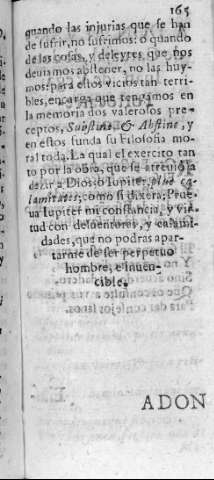 165
quando las injurias que se han
de sufrir, no sufrimos: ò quando
de las cosas, y deleytes, que nos
deuiamos abstener, no las huy-
mos: para estos vicios tan terri-
bles, encarga que tengamos en
la memoria dos valerosos pre-
ceptos, Substine, & Abstine, y
en estos funda su Filosofia mo-
ral toda. La qual el exercito tan
to por la obra, que se atreuio a
dezir a Dios: ò Iupiter, plue ca-
lamitates; como si dixera; Prue
ua Iupiter mi constancia, y vir
tud con desuenturas, y calami
dades, que no podras apar-
tarme de ser perpetuo
hombre, e inuen-
cible.
ADON